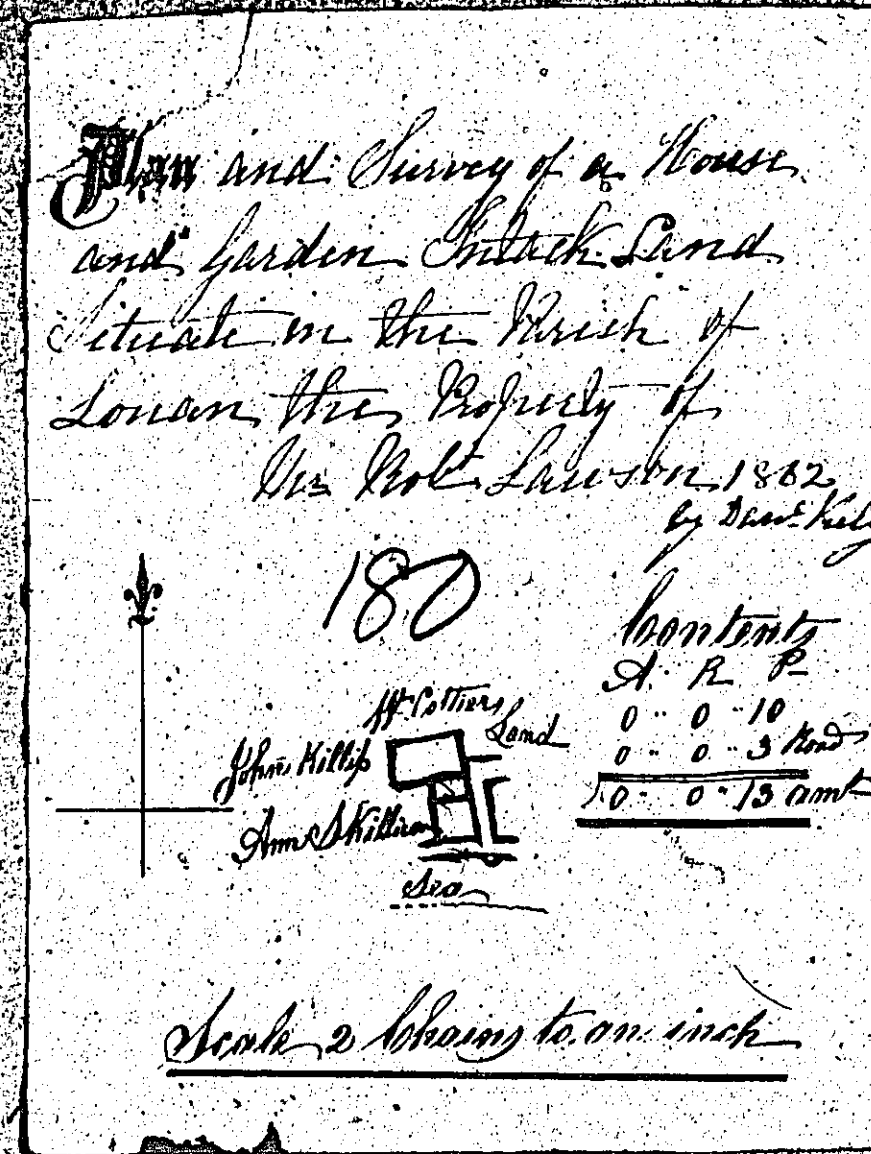 Plan and Survey of a House
and Garden Intack Land
Situate in the Parish of
Lonan the Property of
Mr Robt Lawson 1862
by Danl
180
Contents
A. R P
0 .. 0 .. 10
0 .. 0 .. 3 Road
0 .. 0 .. 13 amt
Wm Cottiers
Land
John Killip
Ann S
Sea
Scale 2 Chains to an inch